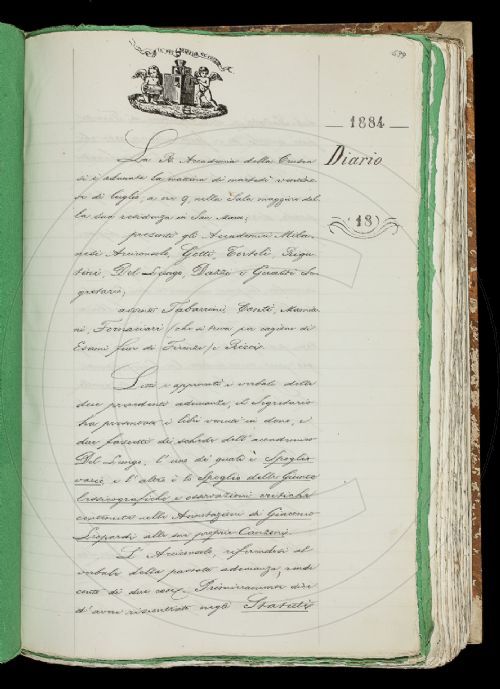 699
1884
Diario
18
La R. Accademia della Crusca
si è adunata la mattina di martedì
di luglio, a ore 9, nella Sala maggiore del
la sua residenza in San Marco;
presenti gli Accademici Mila
nesi Arciconsolo, Gotti, Tortoli, Rigu
tini, Del Lungo, Dazzi e Guasti Se
gretario;
assenti Tabarrini, Conti, Mamia
ni, Fornaciari (che si trova per cagione di
Esami fuor di Firenze) e Ricci.
Letti e approvati i verbali delle
due precedenti adunanze, il Segretario
ha presentato i libri venuti in dono, e
due fascetti di schede dell'accademico
Del Lungo, l'uno de' quali è Spoglio
vario e l'altro è lo Spoglio delle Giunte
lessicografiche e osservazioni critiche
contenute nelle Annotazioni di Giacomo
Leopardi alle sue proprie Canzoni.
L'Arciconsolo, riferendosi al
verbale della passata adunanza, rende
conto di due cose. Primieramente dice
d'avere riscontrato negli Statuti